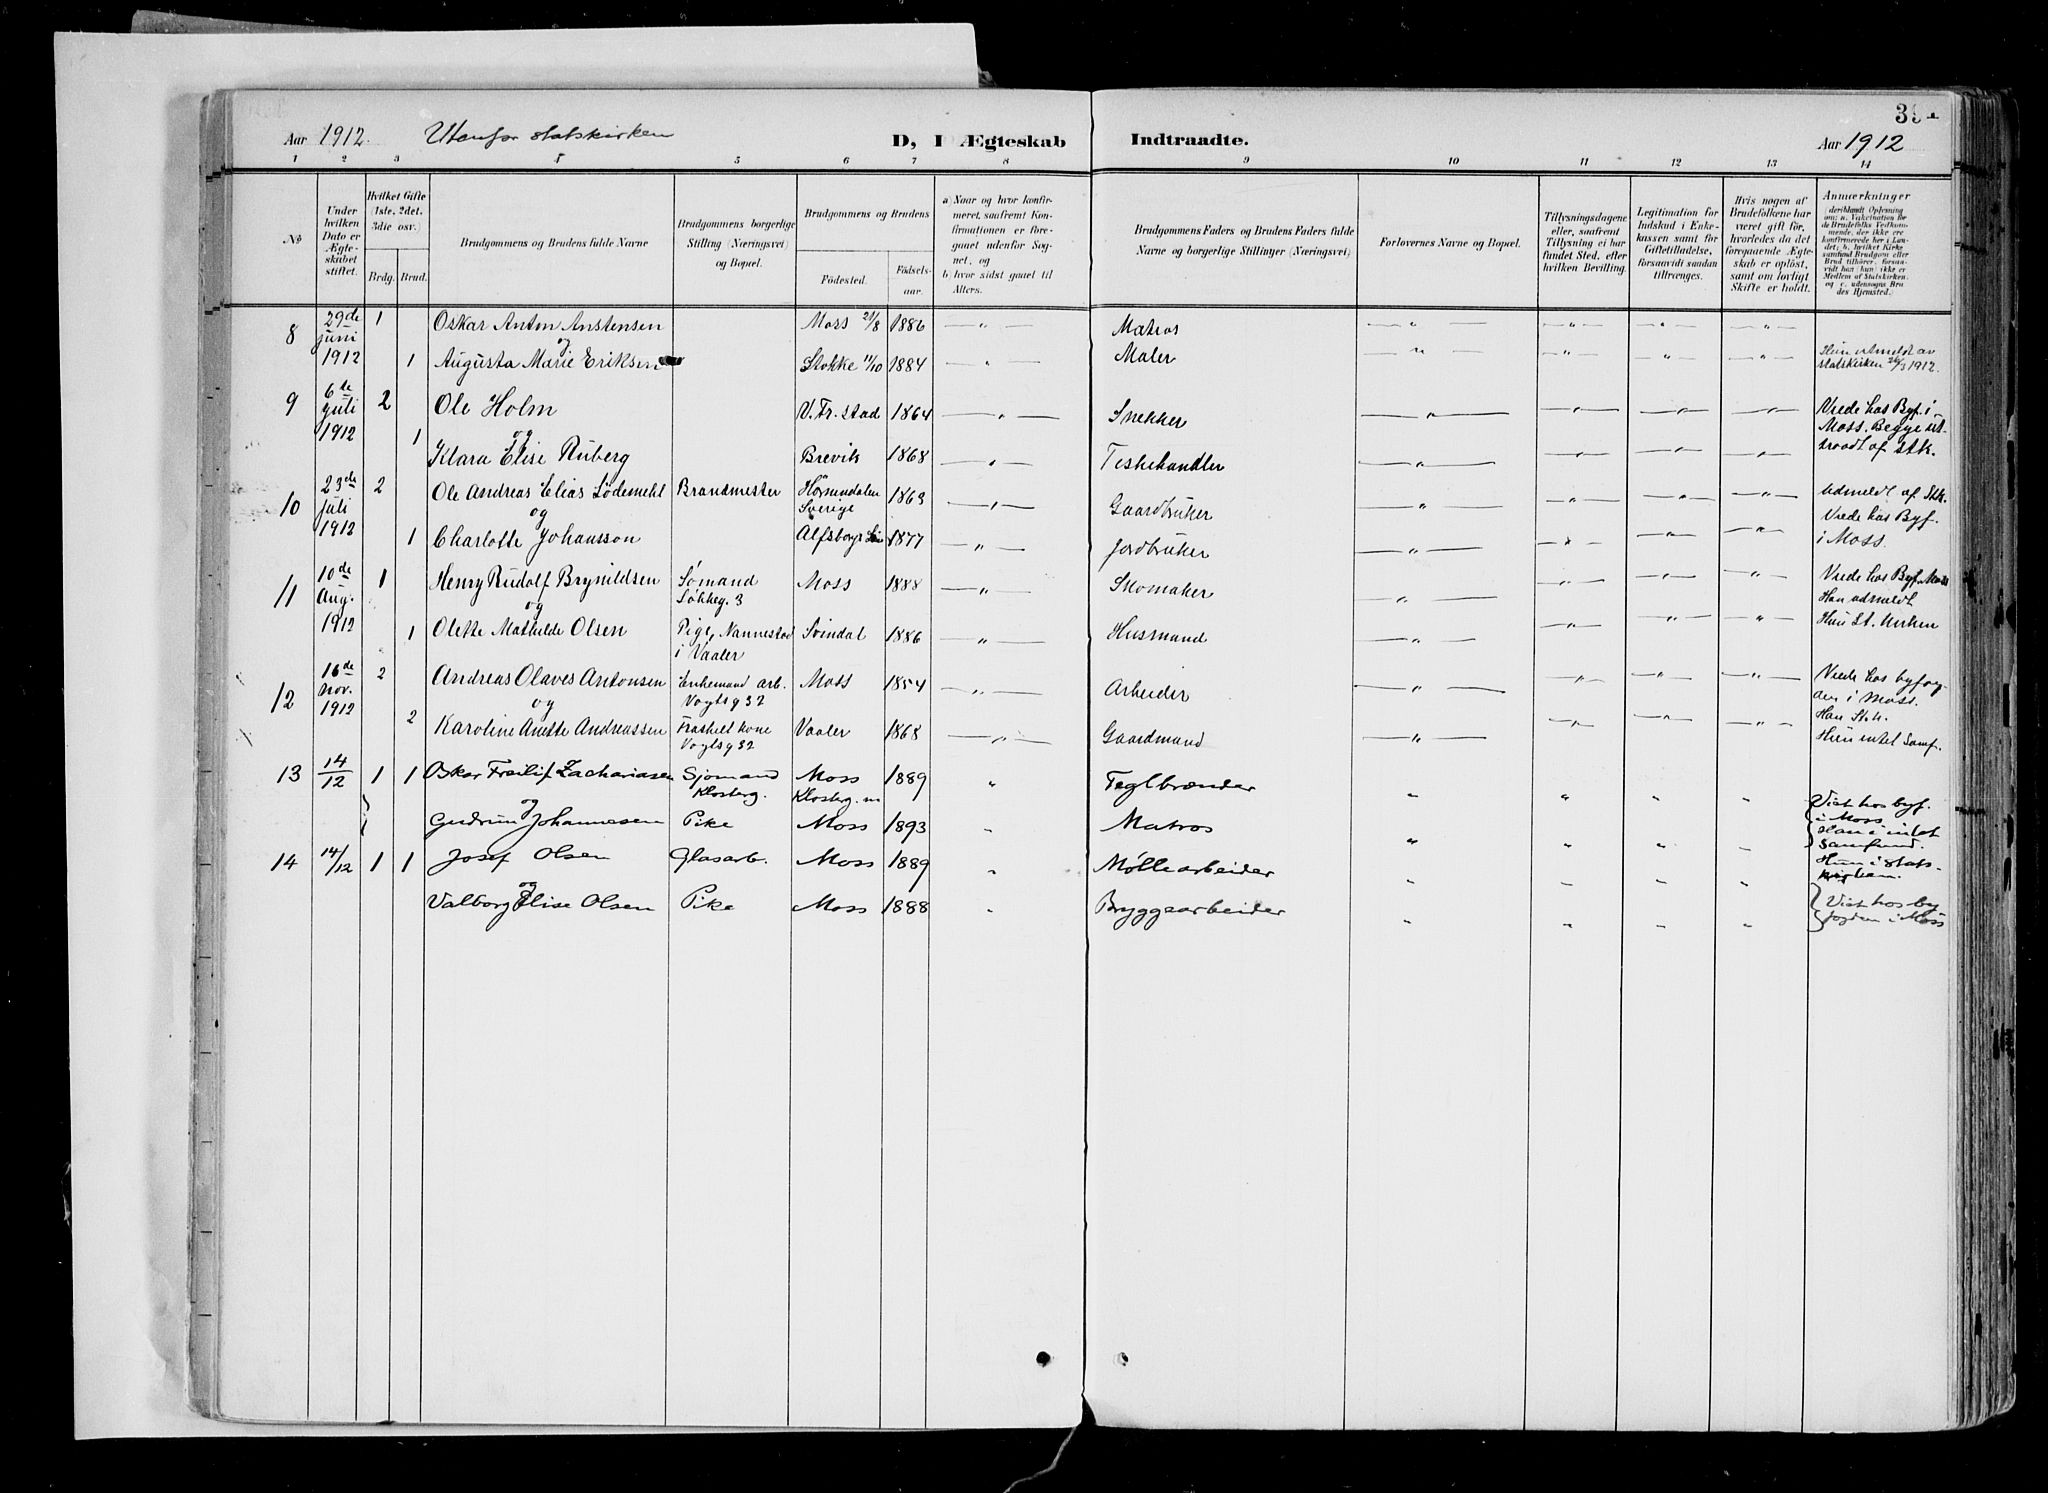 394
Aar 1912. Utenfor statskirken D, I Ægteskab Indtraadte. Aar 1912
1 2 3 4 5 6 7 8 9 10 11 12 13 14
No
Under hvilken Dato er Ægteskabet stiftet.
Hvilket Gifte (1ste, 2det, 3die osv.)
Brdg. Brud.
Brudgommens og Brudens fulde Navne
Brudgommens borgerlige Stilling (Næringsvei) og Bopæl.
Brudgommens og Brudens
Fødested. Fødselsaar.
a) Naar og hvor konfirmeret, saafremt Konfirmationen er foregaaet udenfor Sognet, og
b) hvor sidst gaaet til Alters.
Brudgommens Faders og Brudens Faders fulde Navne og borgerlige Stillinger (Næringsvei)
Forlovernes Navne og Bopæl.
Tillysningsdagene eller, saafremt Tillysning ei har fundet Sted, efter hvilken Bevilling.
Legitimation for Indskud i Enkekassen samt for Giftetilladelse, forsaavidt saadan tiltrænges.
Hvis nogen af Brudefolkene har været gift før, hvorledes da det foregaaende Ægteskab er opløst, samt om lovligt Skifte er holdt.
Anmærkninger
(deriblandt Oplysning om: a. Vakcination for de Brudefolks Vedkommende, der ikke ere konfirmerede her i Landet; b. hvilket Kirkesamfund Brudgom eller Brud tilhører, forsaavidt han (hun) ikke er Medlem af Statskirken, og c. udensogns Brudes Hjemsted.)
8 29de juni 1912 1 Oskar Anton Anstensen Moss 21/8 1886 — " — Matros — " —
og
1 Augusta Marie Eriksen Stokke 11/10 1884 " Maler — " — Hun utmeldt av statskirken 26/3 1912.
9 6te juli 1912 2 Ole Holm V. Fr. stad 1864 — " — Snekker — " — Viede hos Byf. i Moss. Begge ut-
og
1 Klara Elise Ruberg Brevik 1868 — " — Fiskehandler — " — traadt af Stk.
10 23de juli 1912 2 Ole Andreas Elias Södemehl Brandmester Sverige 1863 — " — Gaardbruker — " — Udmeldt af Stk.
og
1 Charlotte Johansson Alfsborgs Län 1877 — " — Jordbruker — " — Viede hos Byf. i Moss.
11 10de Aug. 1912 1 Henry Rudolf Brynildsen Sømand Moss 1888 — " — Skomaker — " — Viede hos Byf. Moss Han udmeldt
og
1 Olette Mathilde Olsen Pige, Nannestad i Vaaler Svindal 1886 " Husmand — " — Hun St. kirken
12 16de Nov. 1912 2 Andreas Olaves Antonsen Enkemand arb. Vogtsg 32 Moss 1854 — " — Arbeider — " — Viede hos byfogden i Moss. Han Stk.
og
2 Karoline Anette Andreassen Fraskelt kone Vogtsg 32 Vaaler 1868 — " — Gaardmand — " — Hun intet Samf.
13 14/12 1 1 Oskar Freilif Zachariasen Sjømand Klosterg. Moss Klosterg. 1889 " Teglbrænder " " " "
og
Gudrun Johannesen Pike Moss 1893 " Matros " " " " Viet hos byf. i Moss Han i intet samfund. Hun i statskirken.
14 14/12 1 1 Josef Olsen Glasarb. Moss 1889 " Møllearbeider " " " "
og
Valborg Elise Olsen Pike Moss 1888 " Bryggearbeider " " " " Viet hos byfogden i Moss